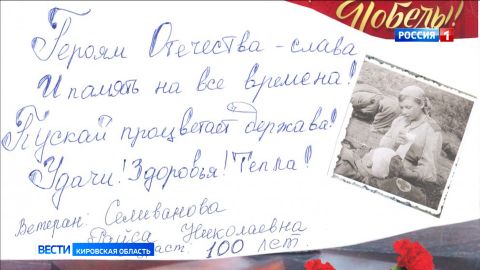 Победы!
РОССИЯ 1
Героям Отечества – слава
И память на все времена!
Пускай процветает держава!
Удачи! Здоровья! Тепла!
Ветеран: Селиванова
Раиса Николаевна
раст: 100 лет.
ВЕСТИ КИРОВСКАЯ ОБЛАСТЬ